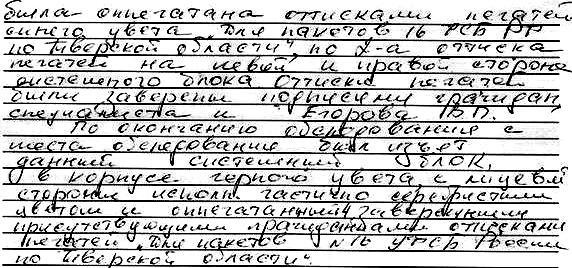 была опечатана оттисками печатей
синего цвета "Для пакетов 16 УФСБ РФ
по Тверской области", по 2-а оттиска
печатей на левой и правой стороне
системного блока. Оттиски печатей
были заверены подписями граждан,
специалиста и Егорова В.П.
По окончанию обследования с
места обследования был изъят
данный системный блок,
в корпусе черного цвета, с лицевой
стороны исполн частично серебристым
цветом и опечатанный, заверенными
присутствующими гражданами оттисками
печатей "Для пакетов №16 УФСБ России
по Тверской области".